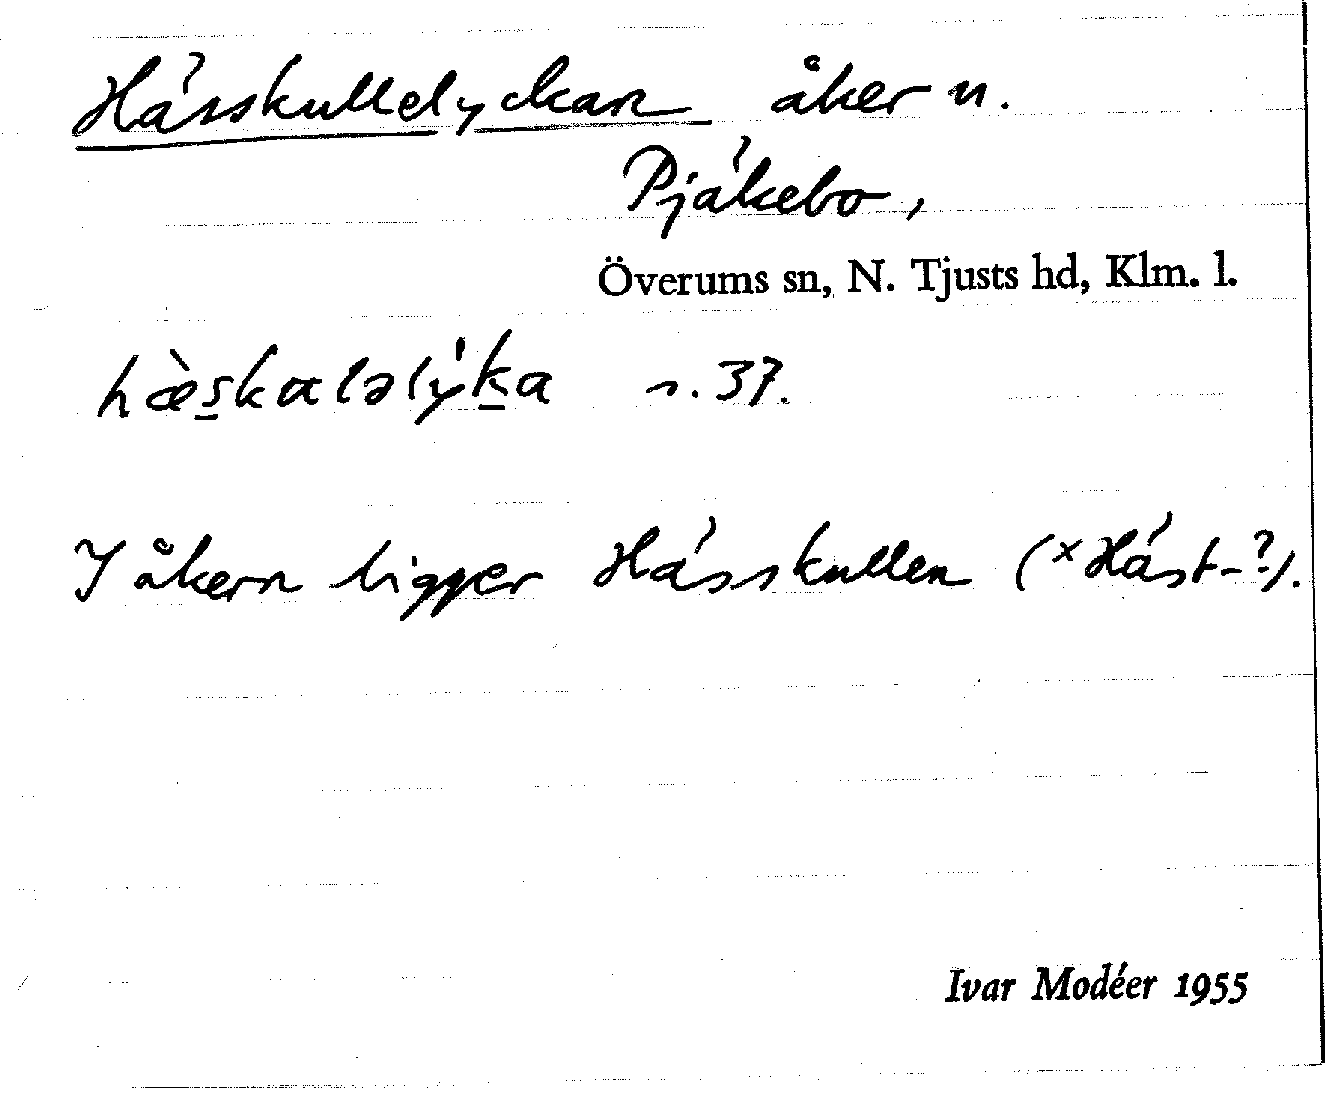 Hässkullelyckan åker n.
Pjäkebo,
Överums sn, N. Tjusts hd, Klm. l.
hæ̀s̲kaləlỳk̲a n. 37.
I åkern ligger Hässkullen (ˣHäst-?).
Ivar Modéer 1955